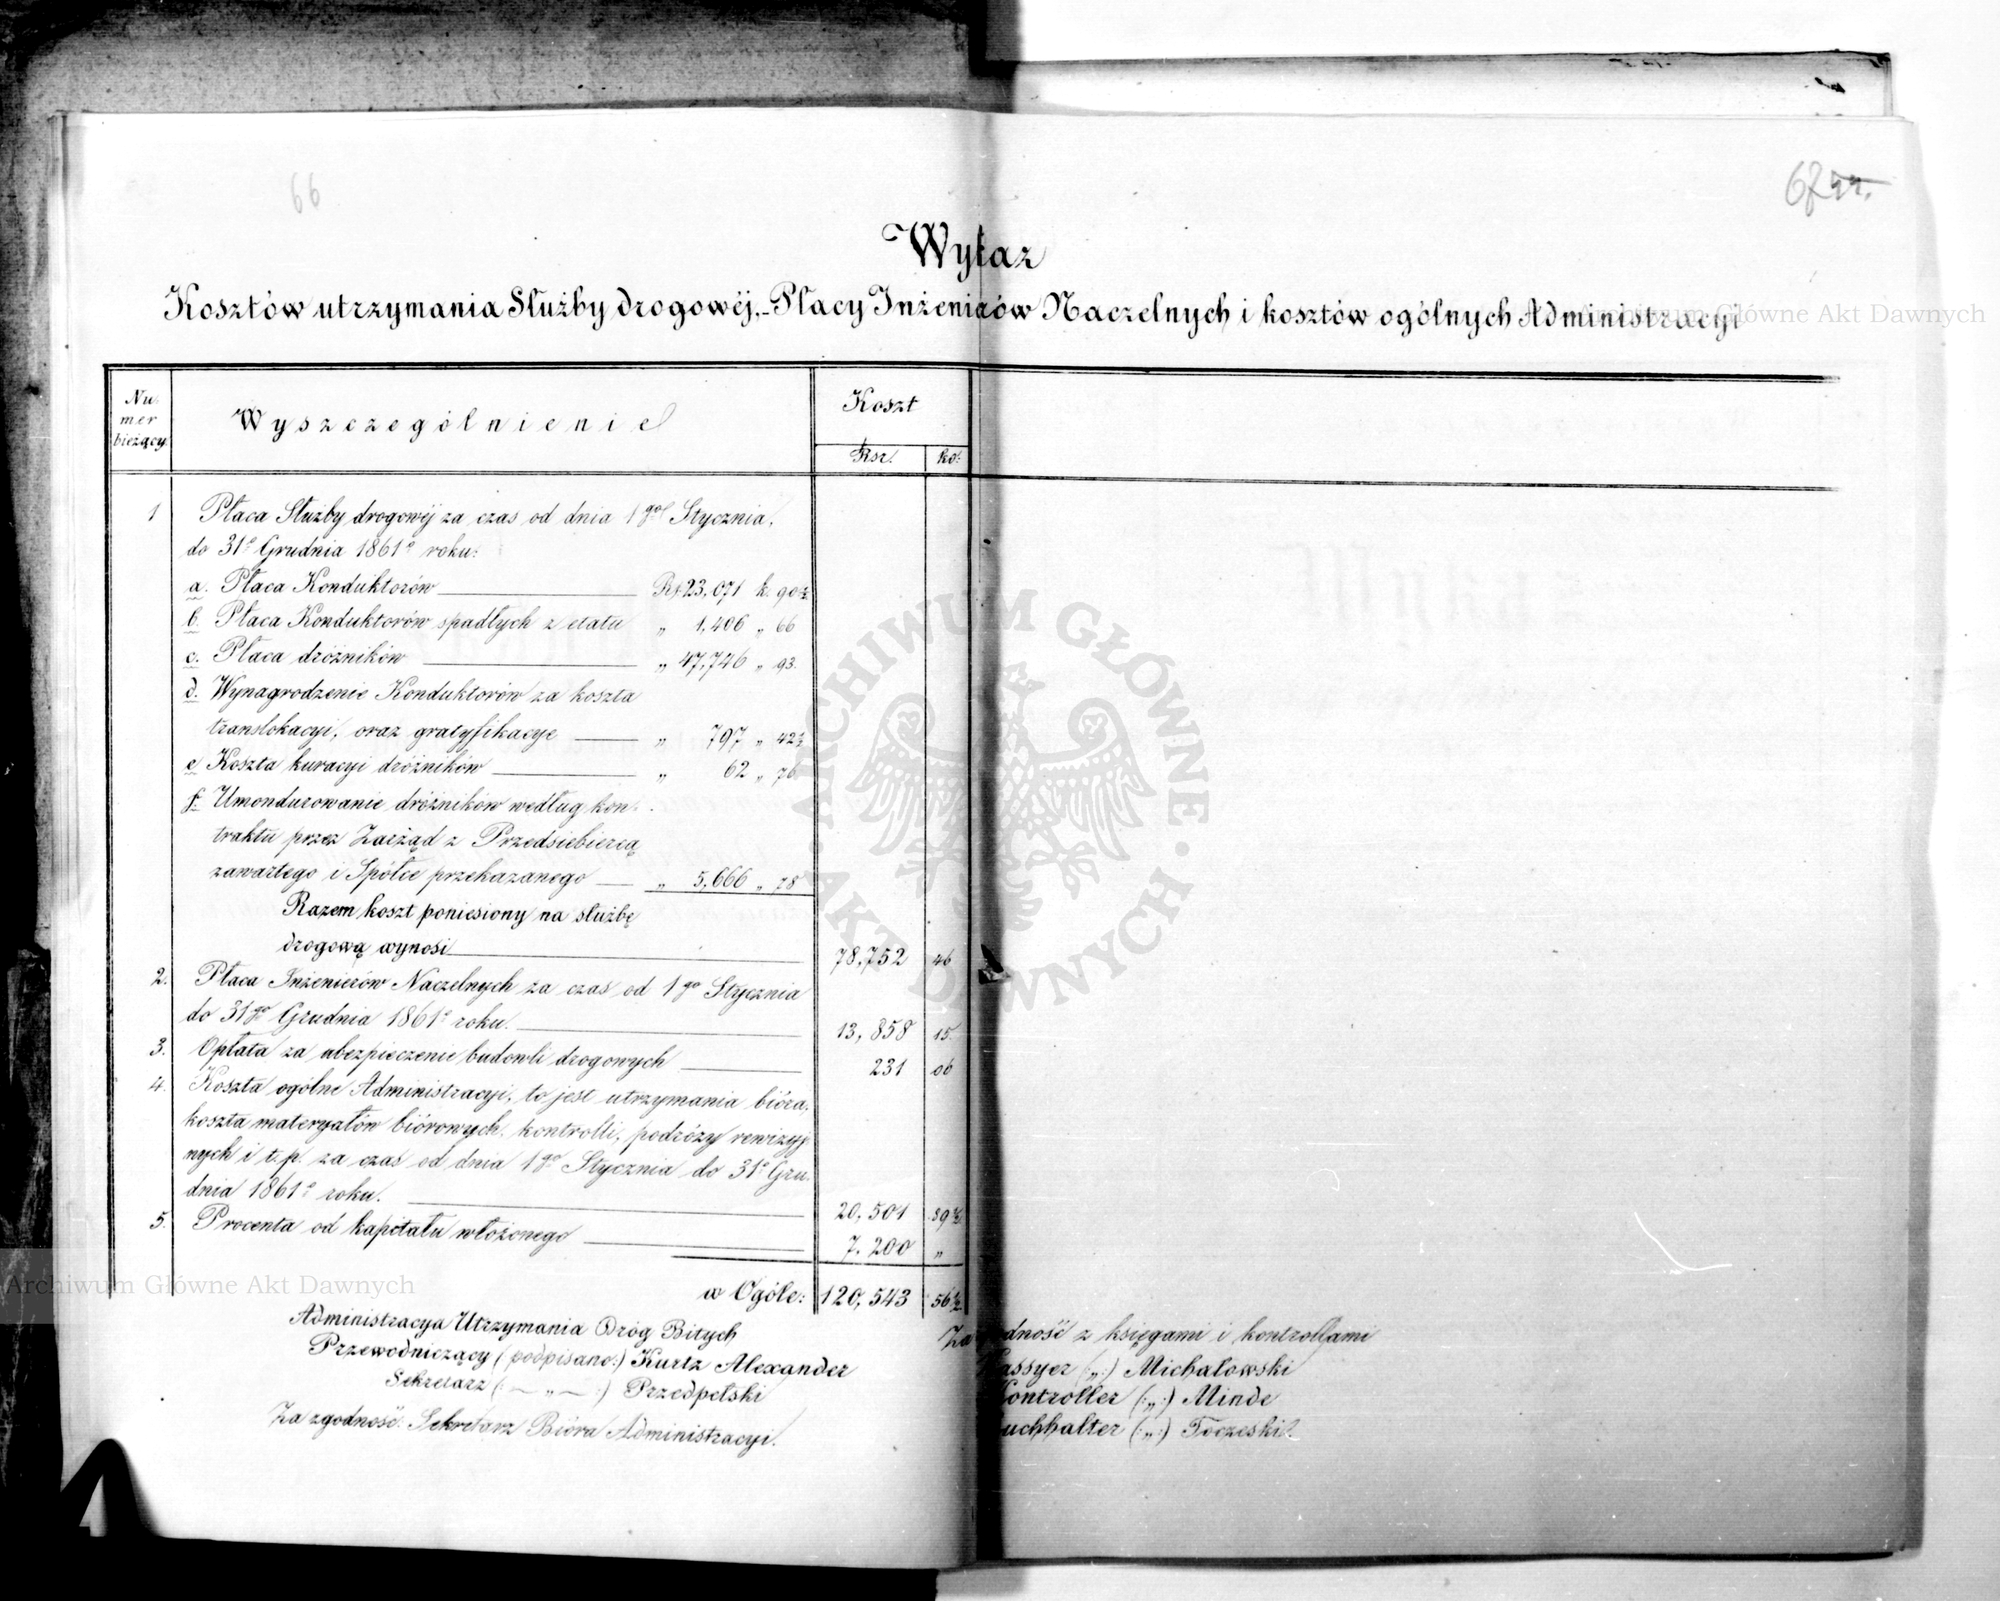 66
67
Wykaz
Kosztów utrzymania Służby drogowéj,- Płacy Inżenierów Naczelnych i kosztów ogólnych Administracyi
Nu-
mer
bieżący
Wyszczególnienie
Koszt
Rsr.
ko:
1 Płaca Służby drogowéj za czas od dnia 1go Stycznia,
do 31o Grudnia 1861o roku:
a. Płaca Konduktorów Rs 23,071 k. 90½
b. Płaca Konduktorów spadłych z etatu „ 1,406 „ 66
c. Płaca dróżników „ 47,746 „ 93.
d. Wynagrodzenie Konduktorów za koszta
translokacyi, oraz gratyfikacye „ 797 „ 42½
e Koszta kuracyi dróżników „ 62 „ 76
f. Umondurowanie dróżników według kon-
traktu przez Zarząd z Przedsiebiercą
zawartego i Spółce przekazanego „ 5,666 „ 78
Razem koszt poniesiony na służbę
drogową wynosi 78,752 46
2. Płaca Inżenierów Naczelnych za czas od 1go Stycznia
do 31go Grudnia 1861o roku. 13,858 15.
3. Opłata za ubezpieczenie budowli drogowych 231 06
4. Koszta ogólne Administracyi, to jest utrzymania bióra,
koszta materyałów biórowych, kontrolli, podróży rewizyj-
nych i t. p. za czas od dnia 1go Stycznia do 31o Gru-
dnia 1861o roku. 20,501 89½
5. Procenta od kapitału włożonego 7.200 „
w Ogóle: 120,543 56½
Administracya Utrzymania Dróg Bitych
Przewodniczący (podpisano:) Kurtz Alexander
Sekretarz (:— „ —:) Przedpełski
Za zgodność: Sekretarz Bióra Administracyi.
Za zgodność z księgami i kontrollami
Kassyer (:„:) Michałowski
Kontroller (:„:) Minde
Buchhalter (:„:) Toczeski
ARCHIWUM GŁÓWNE · AKT DAWNYCH ·
Archiwum Główne Akt Dawnych
Archiwum Główne Akt Dawnych